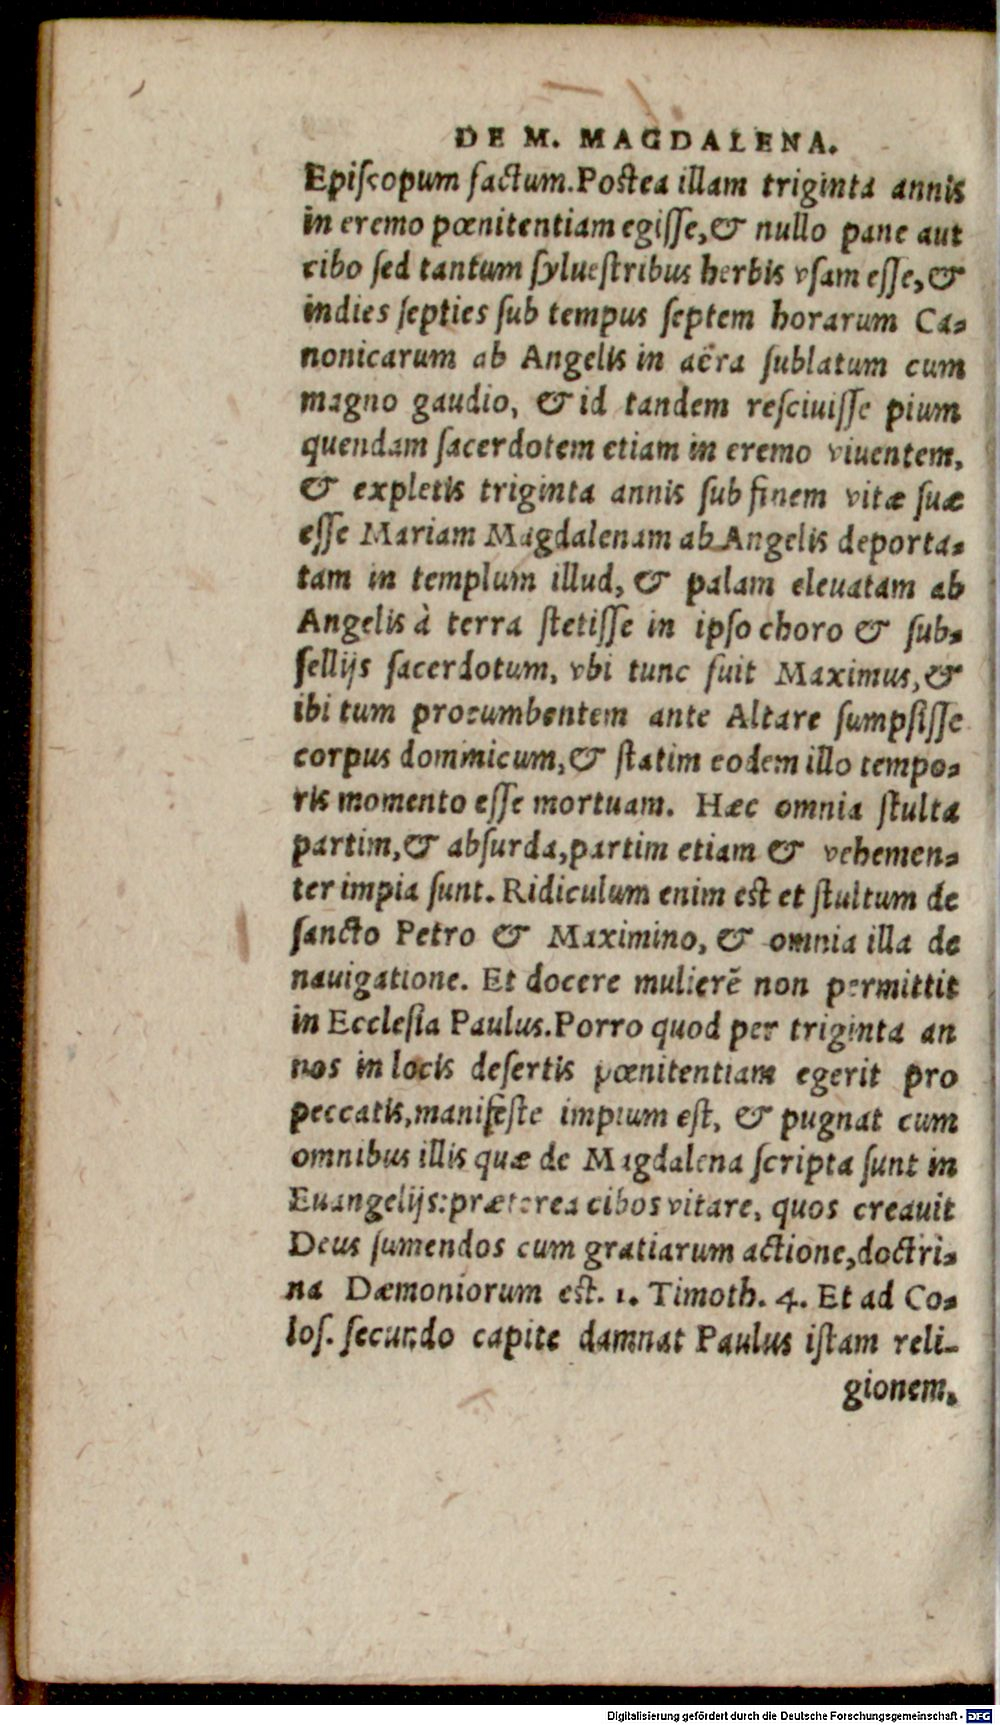 DE M. MAGDALENA.
Epiſcopum factum. Poſtea illam triginta annis
in eremo pœnitentiam egiſſe, & nullo pane aut
cibo ſed tantum ſylueſtribus herbis vſam eſſe, &
indies ſepties ſub tempus ſeptem horarum Ca-
nonicarum ab Angelis in aëra ſublatum cum
magno gaudio, & id tandem reſciuiſſe pium
quendam ſacerdotem etiam in eremo viuentem,
& expletis triginta annis ſub finem vitæ ſuæ
eſſe Mariam Magdalenam ab Angelis deporta-
tam in templum illud, & palam eleuatam ab
Angelis à terra ſtetiſſe in ipſo choro & ſub-
ſellijs ſacerdotum, vbi tunc fuit Maximus, &
ibi tum procumbentem ante Altare ſumpſiſſe
corpus dominicum, & ſtatim eodem illo tempo-
ris momento eſſe mortuam. Hæc omnia ſtulta
partim, & abſurda, partim etiam & vehemen-
ter impia ſunt. Ridiculum enim eſt et ſtultum de
ſancto Petro & Maximino, & omnia illa de
nauigatione. Et docere mulierē non permittit
in Eccleſia Paulus. Porro quod per triginta an
nos in locis deſertis pœnitentiam egerit pro
peccatis, manifeſte impium eſt, & pugnat cum
omnibus illis quæ de Magdalena ſcripta ſunt in
Euangelijs: præterea cibos vitare, quos creauit
Deus ſumendos cum gratiarum actione, doctri-
na Dæmoniorum eſt. 1. Timoth. 4. Et ad Co-
loſ. ſecundo capite damnat Paulus iſtam reli-
gionem,
Digitalisierung gefördert durch die Deutsche Forschungsgemeinschaft - DFG